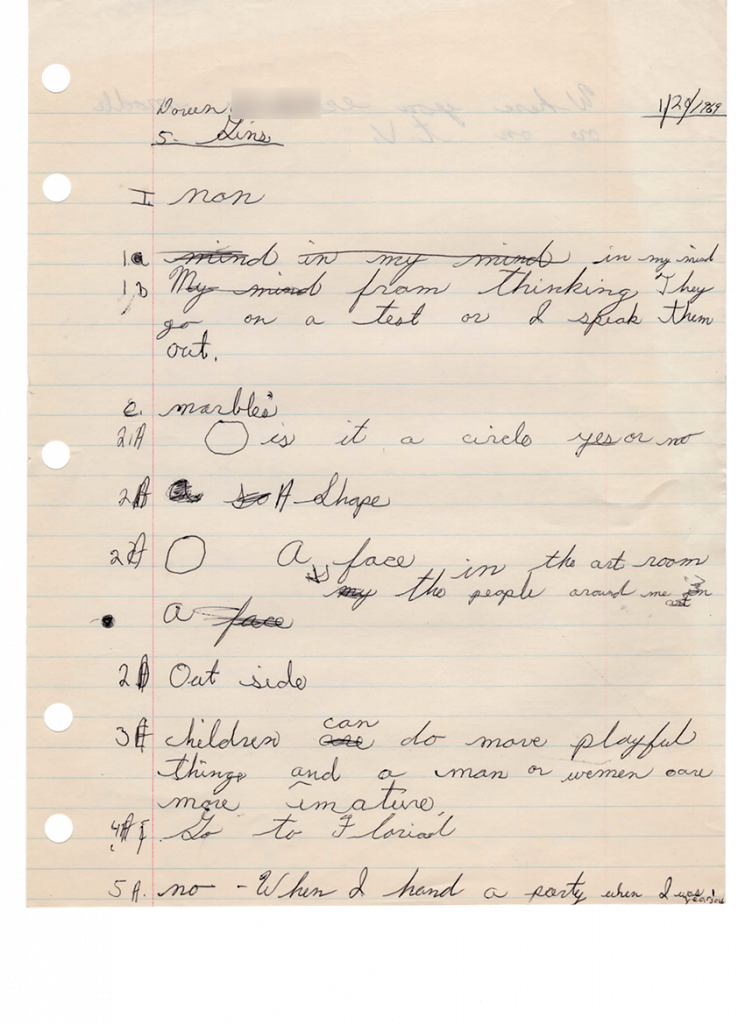 Doren 1/29/1969
5- Lins
I non
1.a mind in my mind in my mind
1b My mind from thinking They
go on a test or I speak them
out.
c. marbles
2.A is it a circle yes or no
2A so A-Shape
2A A face in the art room
my the people around me in
art
a face
2A Out side
can
3A children are do more playful
things and a man or women are
more imature
4A Go to Floriad
5A. no - When I hand a party when I was